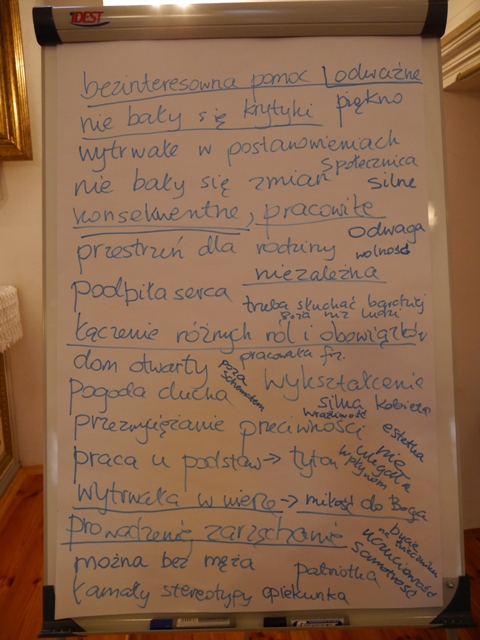 IDEST
bezinteresowna pomoc odważne
nie bały się krytyki piękno
wytrwałe w postanowieniach
społecznica
nie bały się zmian silne
konsekwentne, pracowite
odwaga
przestrzeń dla rodziny wolność
niezależna
podbiła serca
trzeba słuchać bardziej
Boga niż ludzi
łączenie różnych ról i obowiązków
dom otwarty pracowała fiz.
poza
schematem
wykształcenie
pogoda ducha
silna kobieta
wrażliwość
przezwyciężanie przeciwności estetka
praca u podstaw → tytoń
nie
uległa
wpływom
wytrwała w wierze → miłość do Boga
prowadzenie, zarządzanie
bycie
na świeczniku
uczuciowość
samotność
można bez męża patriotka
łamały stereotypy opiekunka